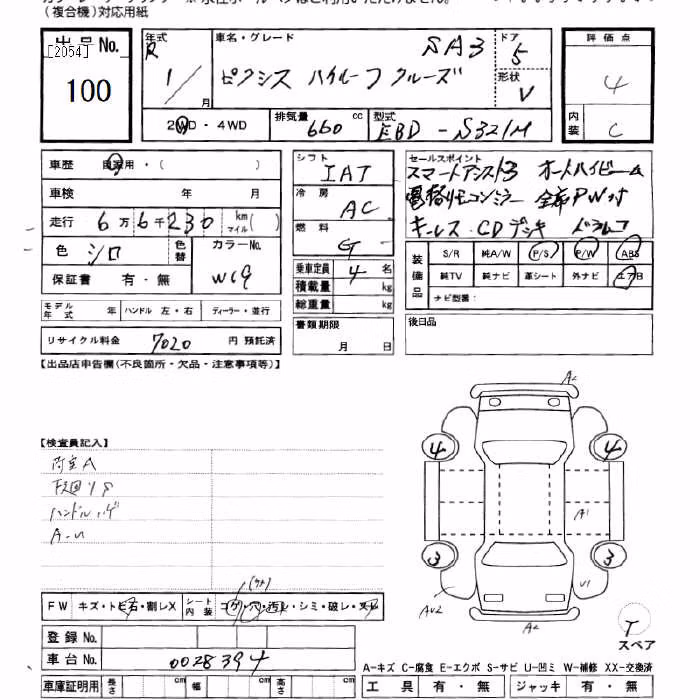 (複合機)対応用紙
出品No.
[2054]
100
年式
R
1/
月
車名・グレード
SA3
ピクシス バイルーフ クルーズ
ドア
5
形状
V
評価点
4
内装
C
2WD・4WD
排気量
660 cc
型式
EBD-S321M
車歴 自家用・( )
車検 年 月
走行 6万6千230 km マイル( )
色 シロ
色替
カラーNo.
W19
保証書 有・無
モデル年式 年 ハンドル 左・右 ディーラー・並行
リサイクル料金 7020 円 預託済
シフト
IAT
冷房
AC
燃料
G
乗車定員 4 名
積載量 kg
総重量 kg
書類期限
月 日
セールスポイント
スマートアシスト3 オートハイビーム
電格リモコンミラー 全席PW付
キーレス・CDデッキ ドラレコ
装備品
S/R 純A/W P/S P/W ABS
純TV 純ナビ 革シート 外ナビ エアB
ナビ型番:
後日品
【出品店申告欄(不良箇所・欠品・注意事項等)】
【検査員記入】
内室A
下廻りS
ハンドルハゲ
A-U
FW キズ・トビ石・割レX
シート内装 コゲ・穴・汚レ・シミ・破レ・スレ
登録No.
車台No. 0028394
車庫証明用 長さ cm 幅 cm 高さ cm
A2
4
4
A1
3
3
AU2
U1
A2
T
スペア
A-キズ C-腐食 E-エクボ S-サビ U-凹ミ W-補修 XX-交換済
工具 有・無 ジャッキ 有・無